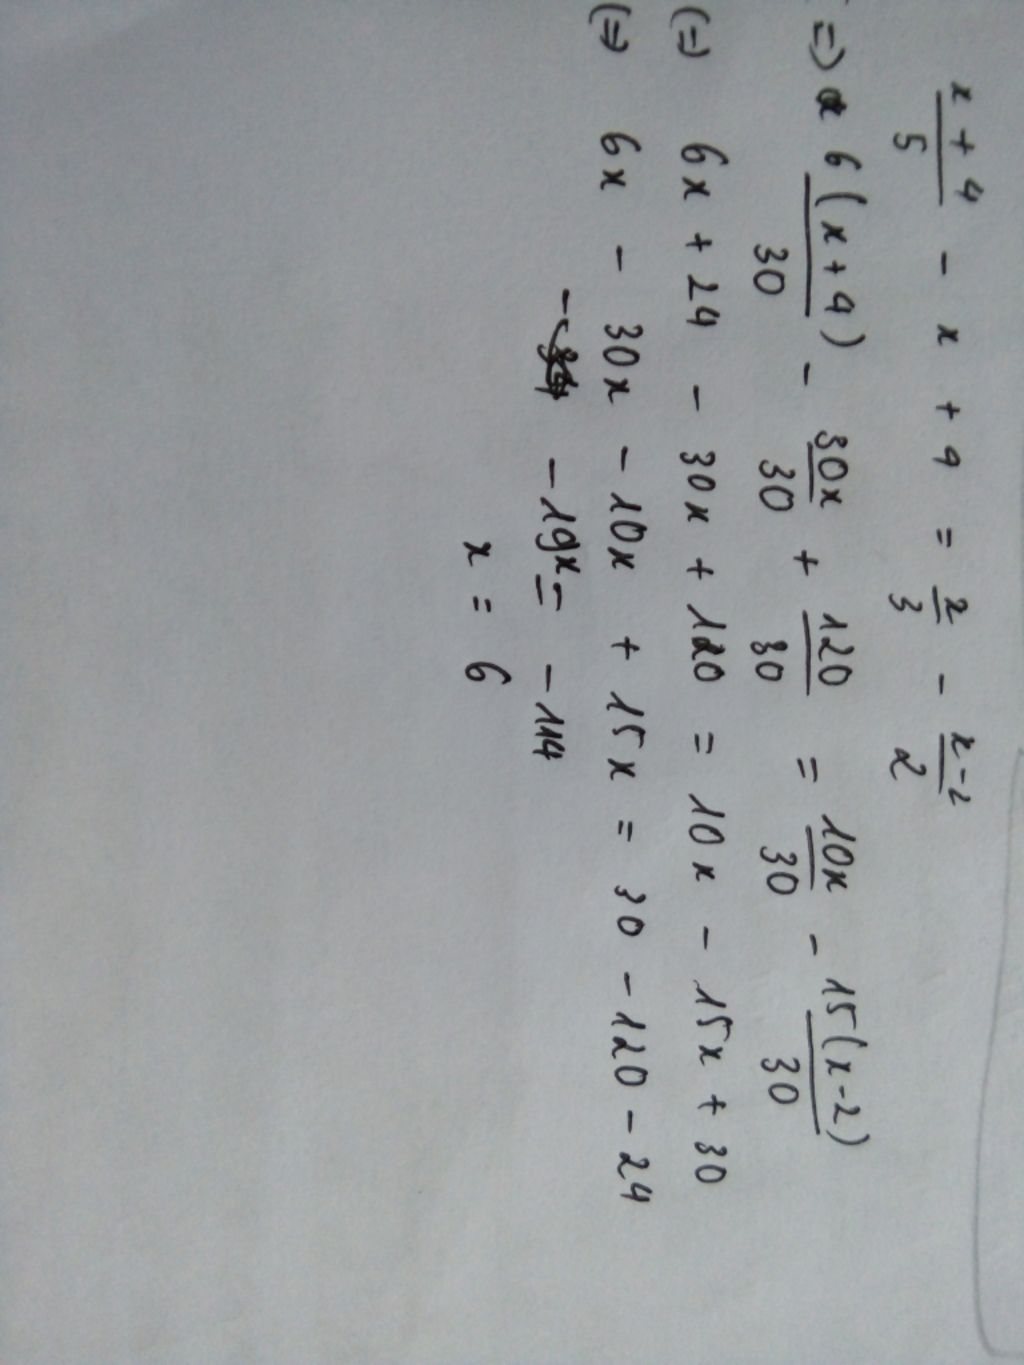 x + 4 / 5 - x + 4 = x / 3 - x - 2 / 2
=> 6(x + 4) / 30 - 30x / 30 + 120 / 30 = 10x / 30 - 15(x - 2) / 30
(=) 6x + 24 - 30x + 120 = 10x - 15x + 30
(=) 6x - 30x - 10x + 15x = 30 - 120 - 24
- 19x = - 114
x = 6